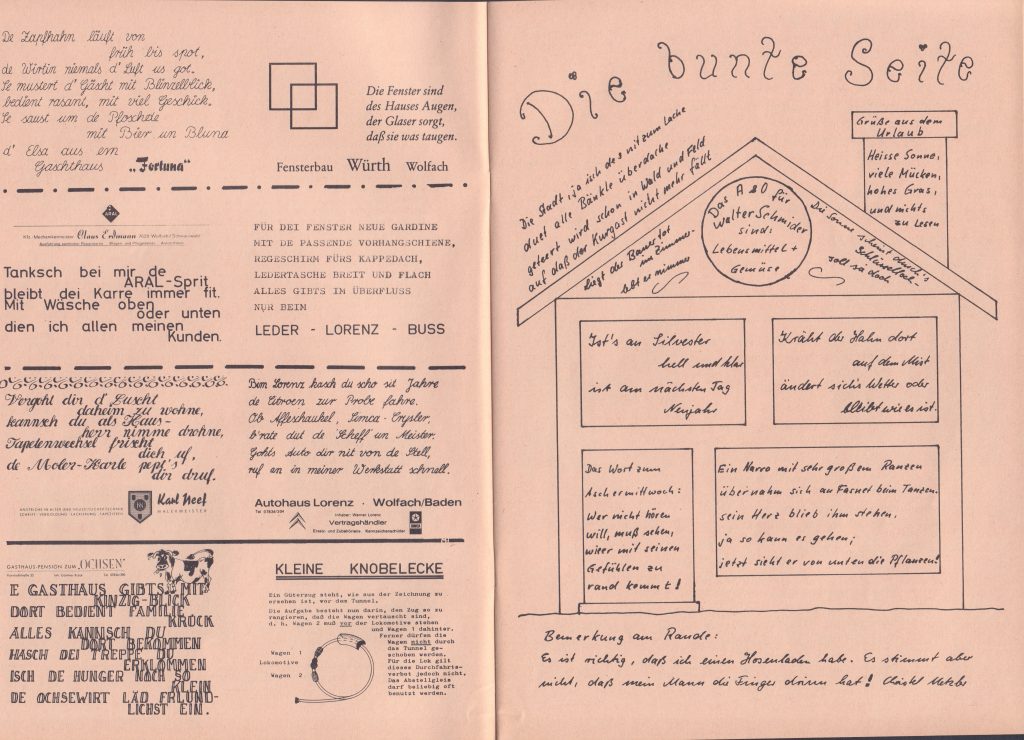 De Zapfhahn läuft von
früh bis spot,
de Wirtin niemals d' Luft us got.
Se mustert d' Gäscht mit Blinzelblick,
bedient rasant, mit viel Geschick.
Se saust um de Pfoschete
mit Bier un Bluna
d' Elsa aus em
Gaschthaus „Fortuna“
Die Fenster sind
des Hauses Augen,
der Glaser sorgt,
daß sie was taugen.
Fensterbau Würth Wolfach
ARAL
Kfz.-Mechanikermeister Claus Erdmann 7620 Wolfach/Schwarzwald
Tanksch bei mir de
ARAL-Sprit
bleibt dei Karre immer fit.
Mit Wäsche oben
oder unten
dien ich allen meinen
Kunden.
FÜR DEI FENSTER NEUE GARDINE
MIT DE PASSENDE VORHANGSCHIENE,
REGESCHIRM FÜRS KAPPEDACH,
LEDERTASCHE BREIT UND FLACH
ALLES GIBTS IM ÜBERFLUSS
NUR BEIM
LEDER - LORENZ - BUSS
Vergeht dir d' Luscht
daheim zu wohne,
kannsch du als Haus-
herr nimme drohne,
Tapetenwechsel frischt
dich uf,
de Moler-Karle pept's
dir druf.
Karl Neef
MALERMEISTER
Bim Lorenz kasch du scho sit Jahre
de Citroen zur Probe fahre.
Ob Affeschaukel, Simca-Crysler,
b'rate dut de 'Scheff' un Meister.
Gohts Auto dir nit von de Stell,
ruf an in meiner Werkstatt schnell.
Autohaus Lorenz · Wolfach/Baden
Tel 07834/394
Inhaber: Werner Lorenz
Vertragshändler
Ersatz- und Zubehörteile Kennzeichenschilder
GASTHAUS-PENSION ZUM „OCHSEN“
E GASTHAUS GIBTS MIT
KINZIG-BLICK
DORT BEDIENT FAMILIE
KROCK
ALLES KANNSCH DU
DORT BEKOMMEN
HASCH DEI TREPPE DU
ERKLOMMEN
ISCH DE HUNGER NOCH SO
KLEIN
DE OCHSEWIRT LÄD FREUND-
LICHST EIN.
KLEINE KNOBELECKE
Ein Güterzug steht, wie aus der Zeichnung zu
ersehen ist, vor dem Tunnel.
Die Aufgabe besteht nun darin, den Zug so zu
rangieren, daß die Wagen vertauscht sind,
d. h. Wagen 2 muß vor der Lokomotive stehen
und Wagen 1 dahinter.
Ferner dürfen die
Wagen nicht durch
das Tunnel ge-
schoben werden.
Für die Lok gilt
dieses Durchfahrts-
verbot jedoch nicht.
Das Abstellgleis
darf beliebig oft
benutzt werden.
Wagen 1
Lokomotive
Wagen 2
Die bunte Seite
Die Stadt, ja isch des nit zum Lache
duet alle Bänkle überdache
geteert wird schon in Wald und Feld
auf daß der Kurgast nicht mehr fällt
Liegt der Bauer tot
im Zimmer-
lebt er nimmer
Das A & O für
Walter Schmider
sind:
Lebensmittel +
Gemüse
Die Sonne scheint durch's
Schlüsselloch-
soll sie doch
Grüße aus dem
Urlaub
Heisse Sonne,
viele Mücken,
hohes Gras,
und nichts
zu Lesen
Ist's an Silvester
hell und klar
ist am nächsten Tag
Neujahr
Kräht der Hahn dort
auf dem Mist
ändert sich's Wetter oder
bleibt wie es ist.
Das Wort zum
Aschermittwoch:
Wer nicht hören
will, muß sehen,
wie er mit seinen
Gefühlen zu
rand kommt!
Ein Narro mit sehr großem Ranzen
übernahm sich an Fasnet beim Tanzen.
sein Herz blieb ihm stehen,
ja so kann es gehen;
jetzt sieht er von unten die Pflanzen!
Bemerkung am Rande:
Es ist richtig, daß ich einen Hosenladen habe. Es stimmt aber
nicht, daß mein Mann die Finger drinn hat!